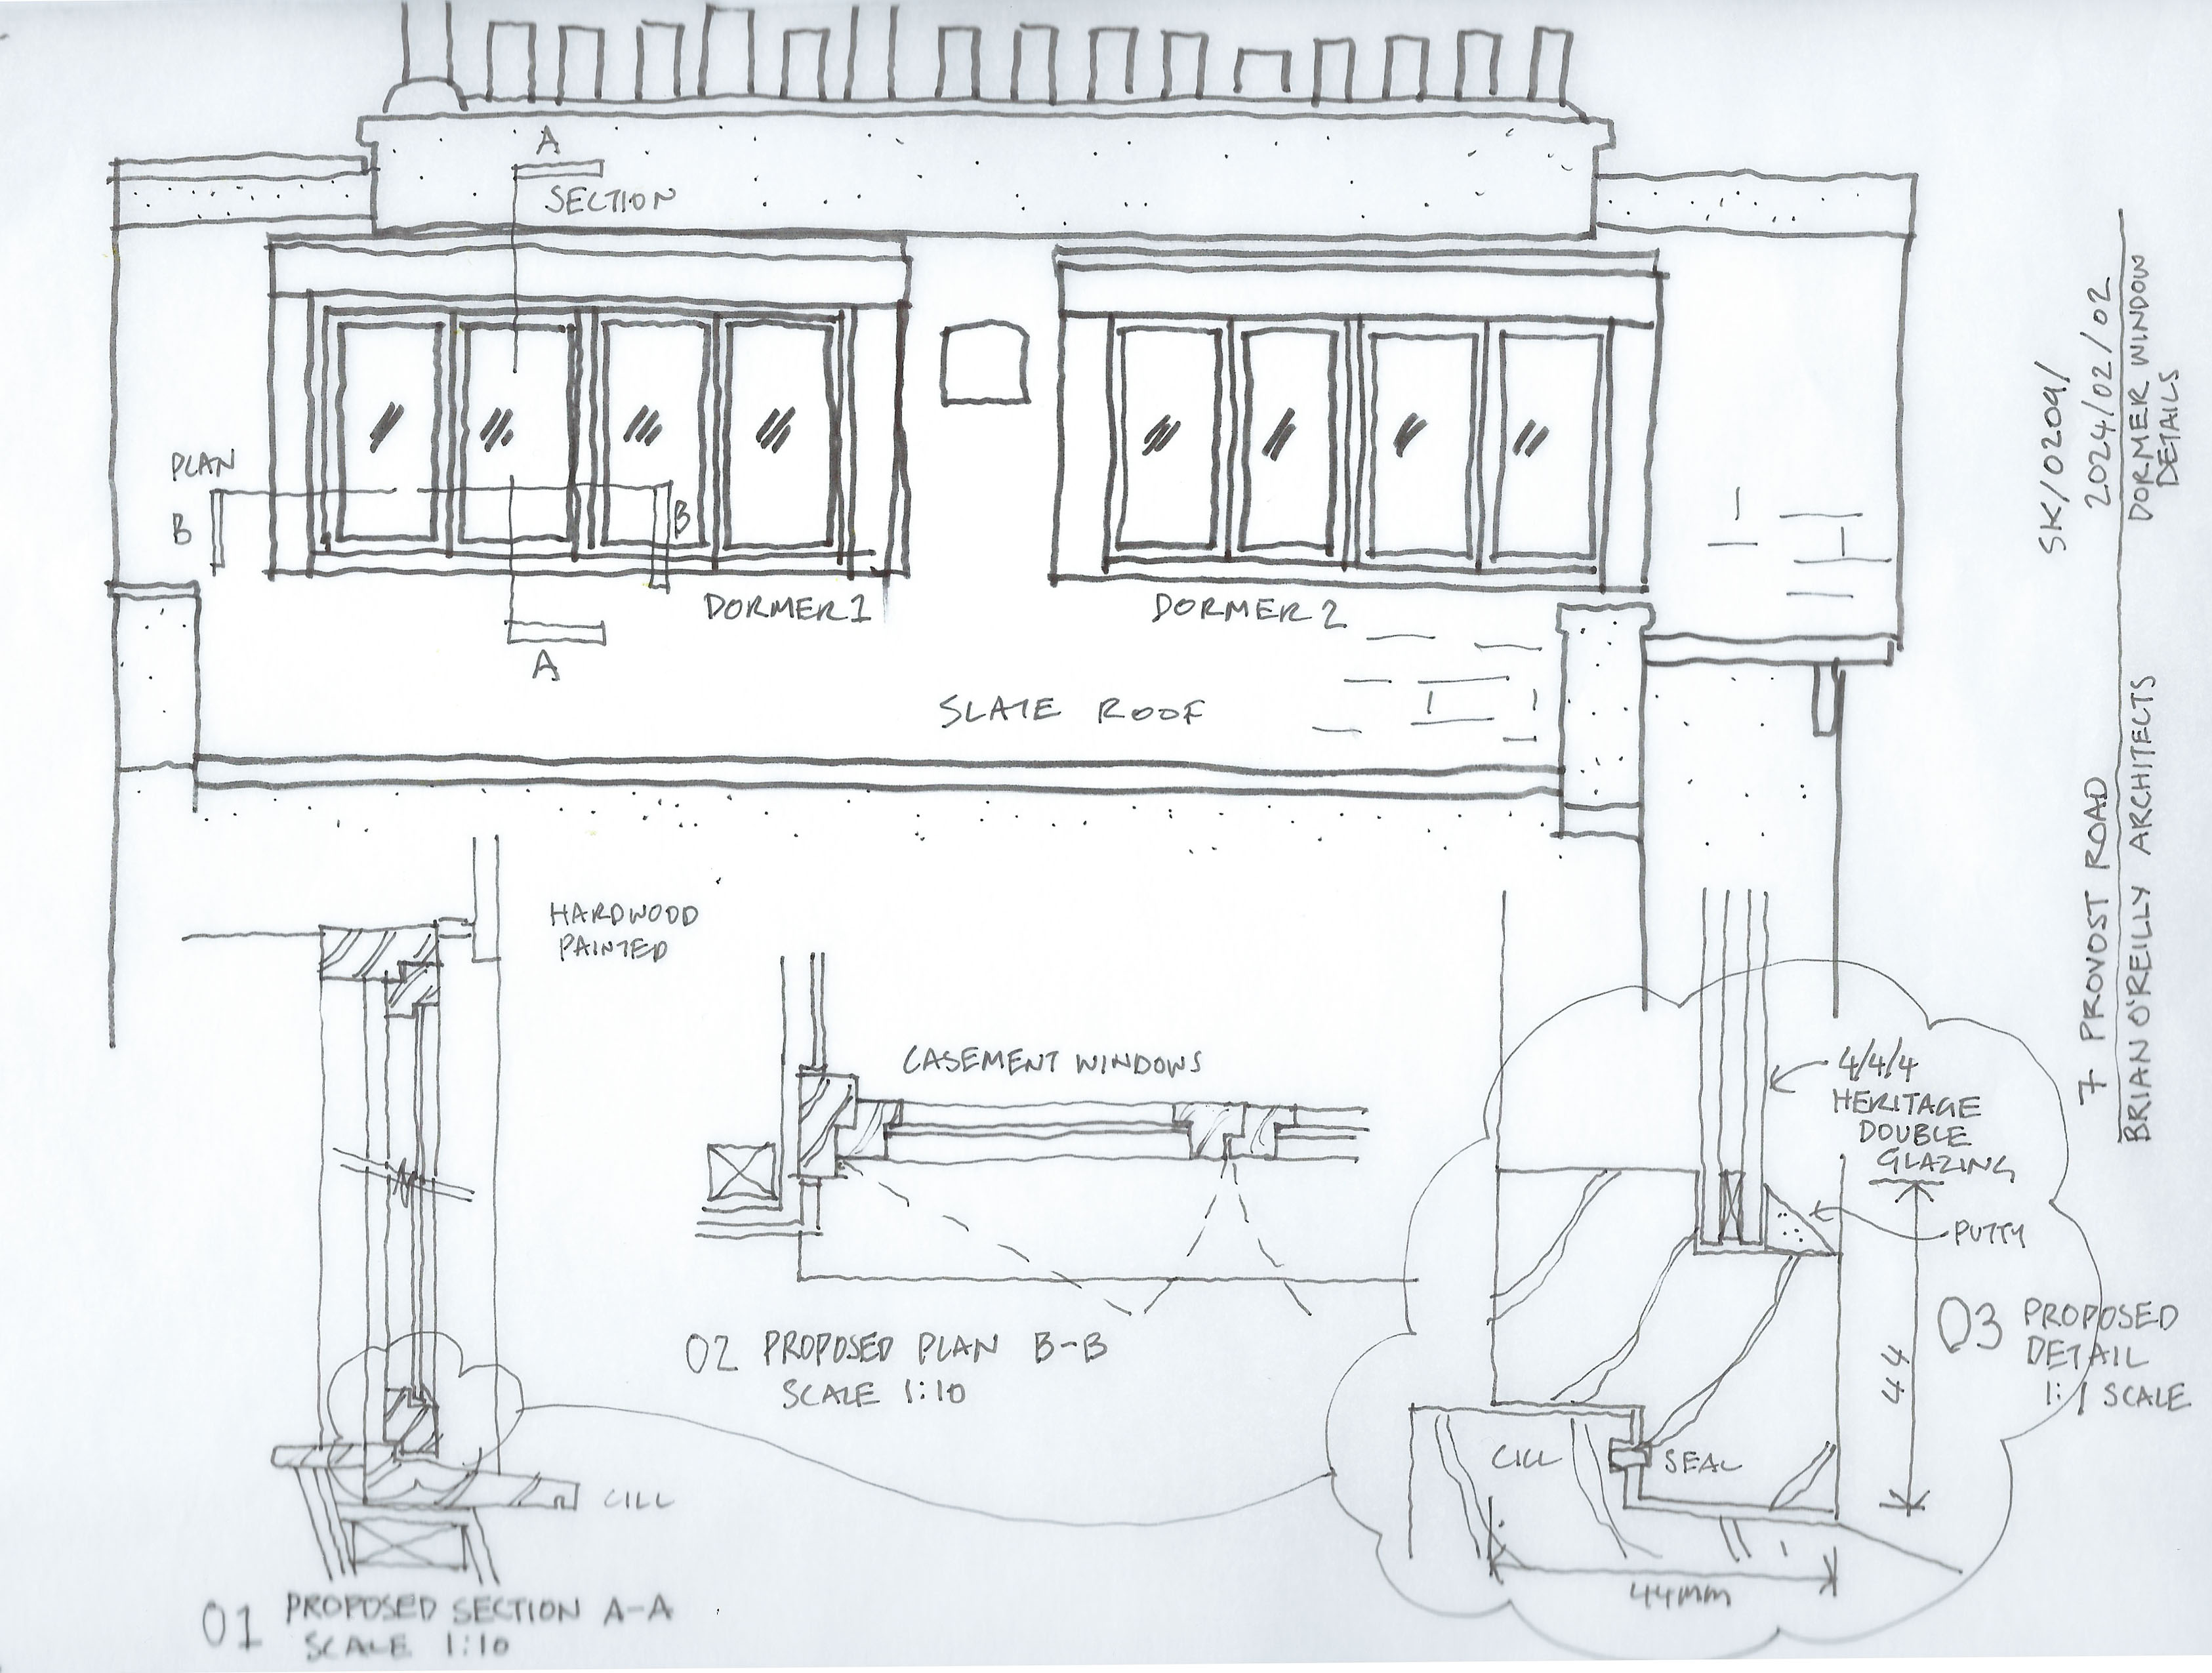 A
SECTION
PLAN
B
B
DORMER 1
DORMER 2
A
SLATE ROOF
HARDWOOD
PAINTED
CASEMENT WINDOWS
4/4/4
HERITAGE
DOUBLE
GLAZING
PUTTY
CILL
SEAL
44
44mm
03 PROPOSED
DETAIL
1:1 SCALE
02 PROPOSED PLAN B-B
SCALE 1:10
CILL
01 PROPOSED SECTION A-A
SCALE 1:10
SK/0209/
2024/02/02
DORMER WINDOW
DETAILS
7 PROVOST ROAD
BRIAN O'REILLY ARCHITECTS